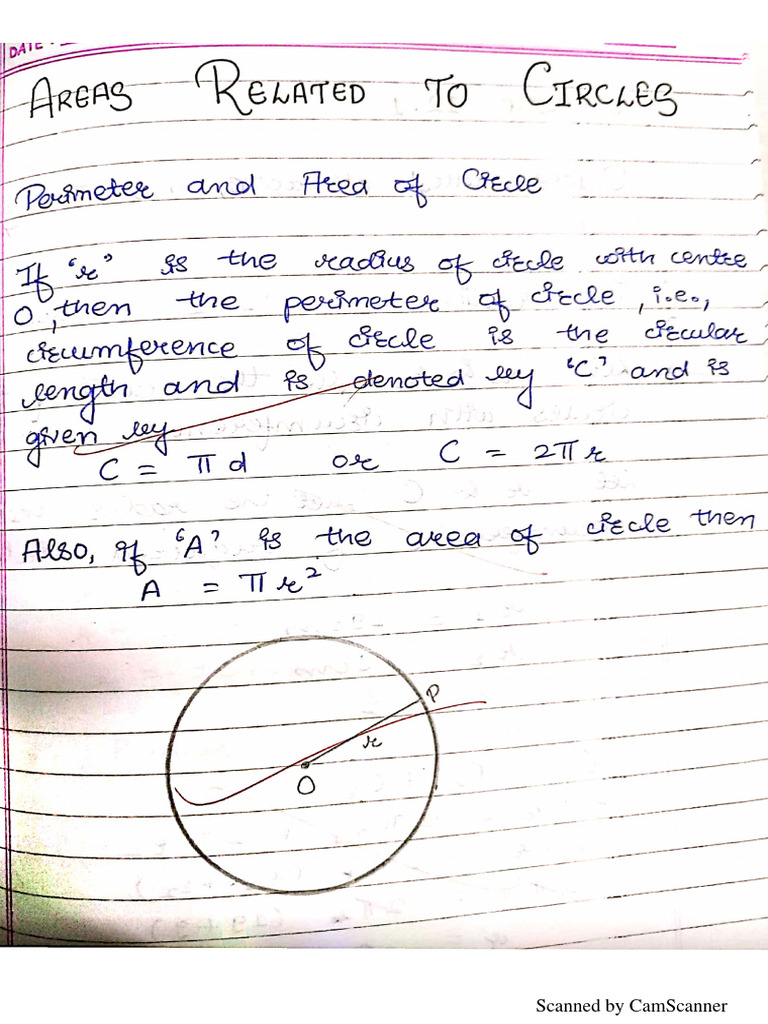 DATE
AREAS RELATED TO CIRCLES
Perimeter and Area of Circle
If "r" is the radius of circle with centre
O, then the perimeter of circle, i.e.,
circumference of circle is the circular
length and is denoted by "C" and is
given by
C = πd or C = 2πr
Also, if "A" is the area of circle then
A = πr²
P
r
O
Scanned by CamScanner